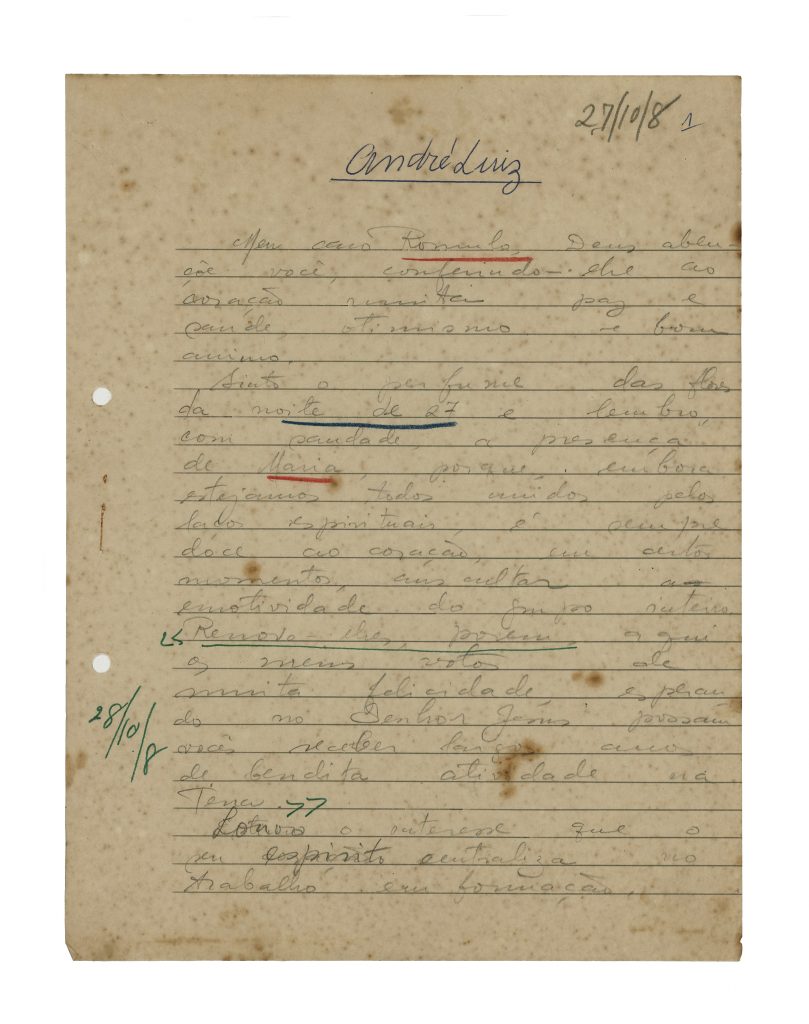 27/10/8 1
André Luiz
Meu caro Romulo, Deus aben-
çôe você, conferindo-lhe ao
coração muita paz e
saude, otimismo e bom
animo.
Sinto o perfume das flores
da noite de 27 e lembro,
com saudade, a presença
de Maria, porque, embora
estejamos todos unidos pelos
laços espirituais, é sempre
doce ao coração, em certos
momentos, auscultar a
emotividade do grupo inteiro.
<< Renovo-lhes, porem, aqui
os meus votos de
muita felicidade, esperan
do no Senhor Jesus possam
28/10/8
vocês receber largos anos
de bendita atividade na
Terra. >>
Louvo o interesse que o
seu espirito centraliza no
trabalho em formação.